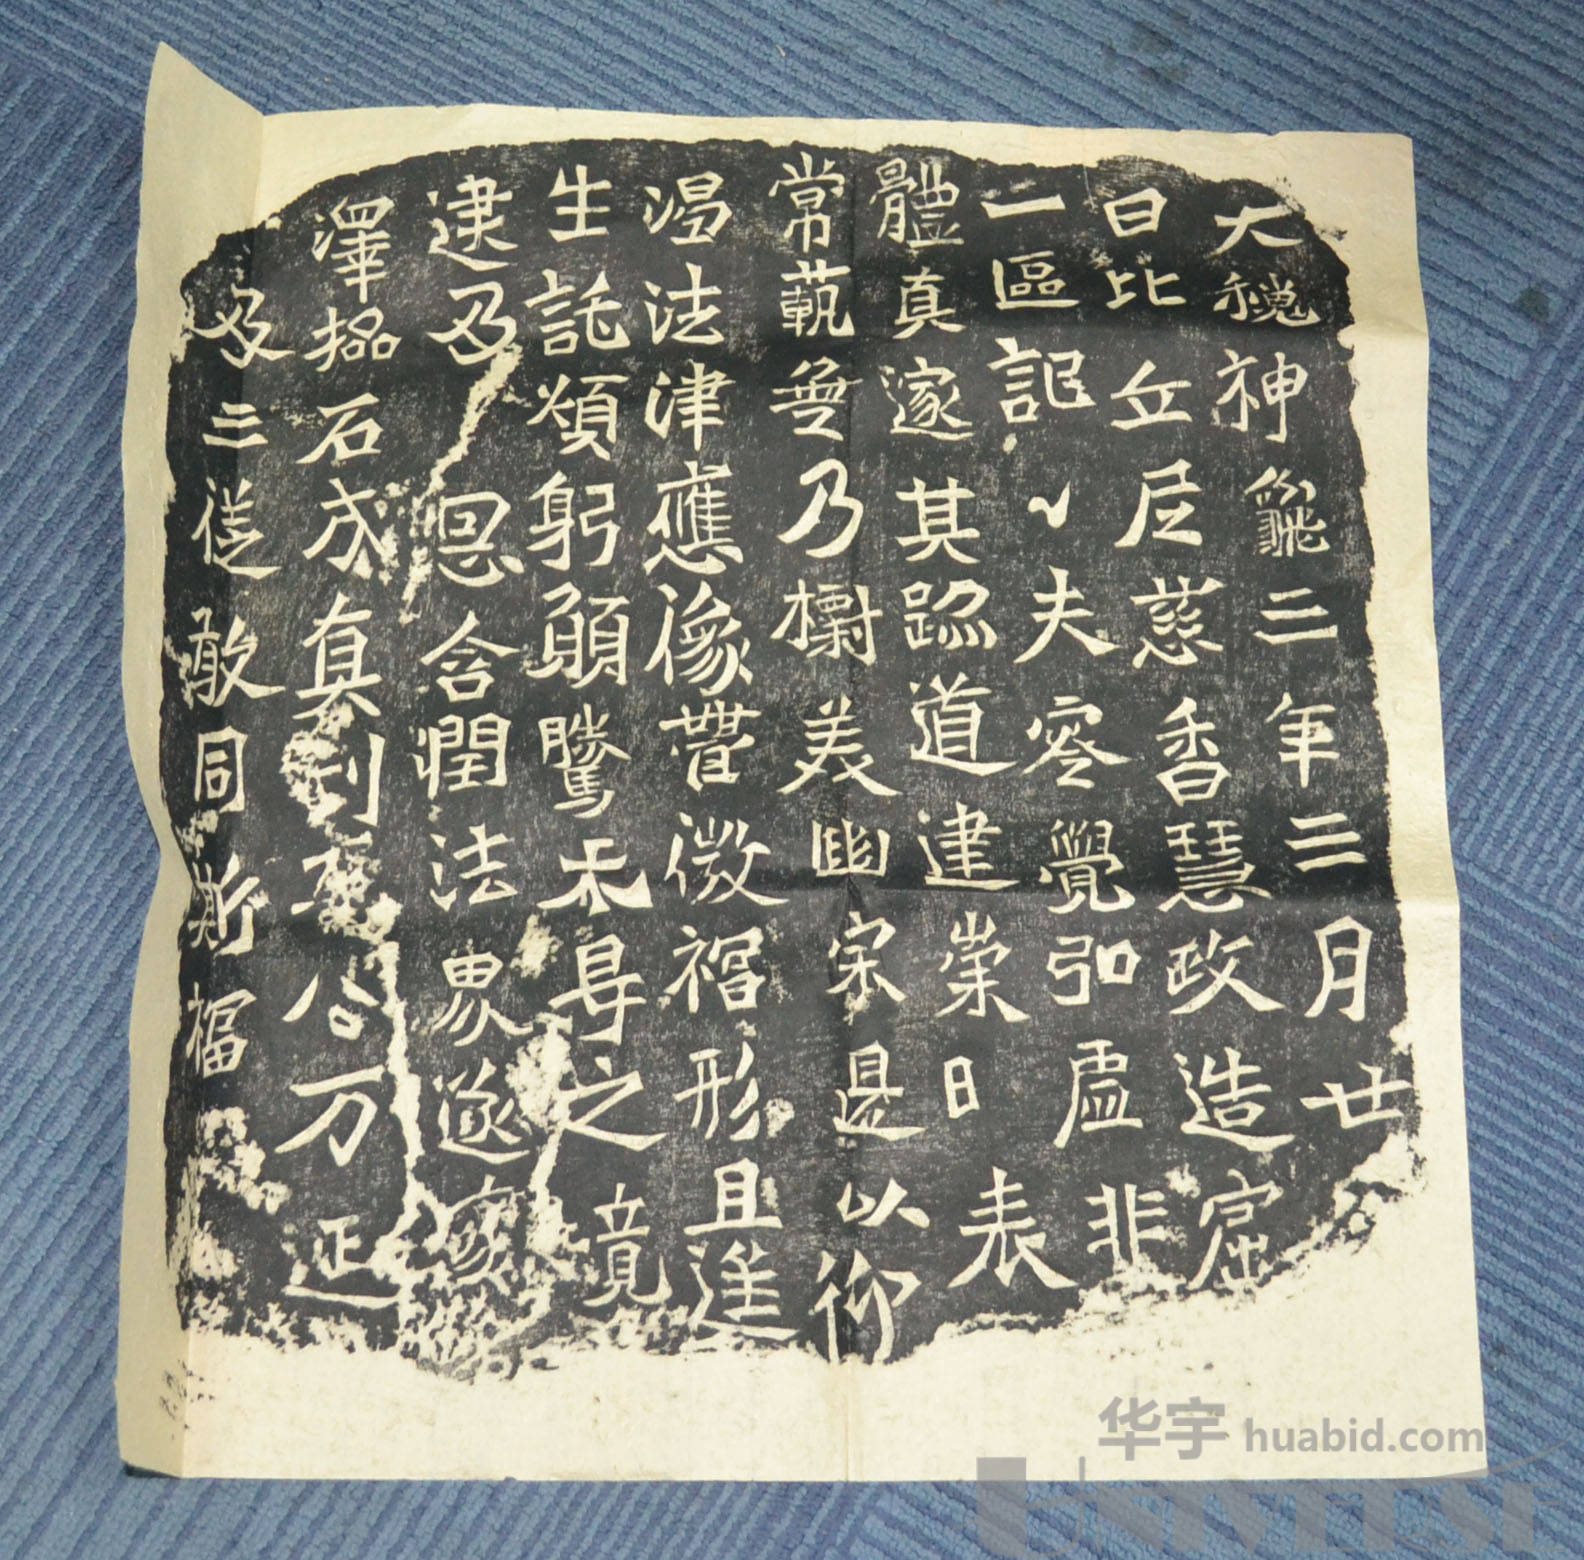 大魏神龜三年三月廿
日比丘尼慈香慧政造窟
一區記〻夫零覺弘虛非
體真邃其跡道建崇日表
常範無乃標美幽宗是以仰
渴法津應像營微福形且遥
生託煩躬願騰无㝵之境
逮及恩含潤法界遂
澤㧢石成真刊公万延
及三從敢同斯福
华宇 huabid.com
UNIVERSE